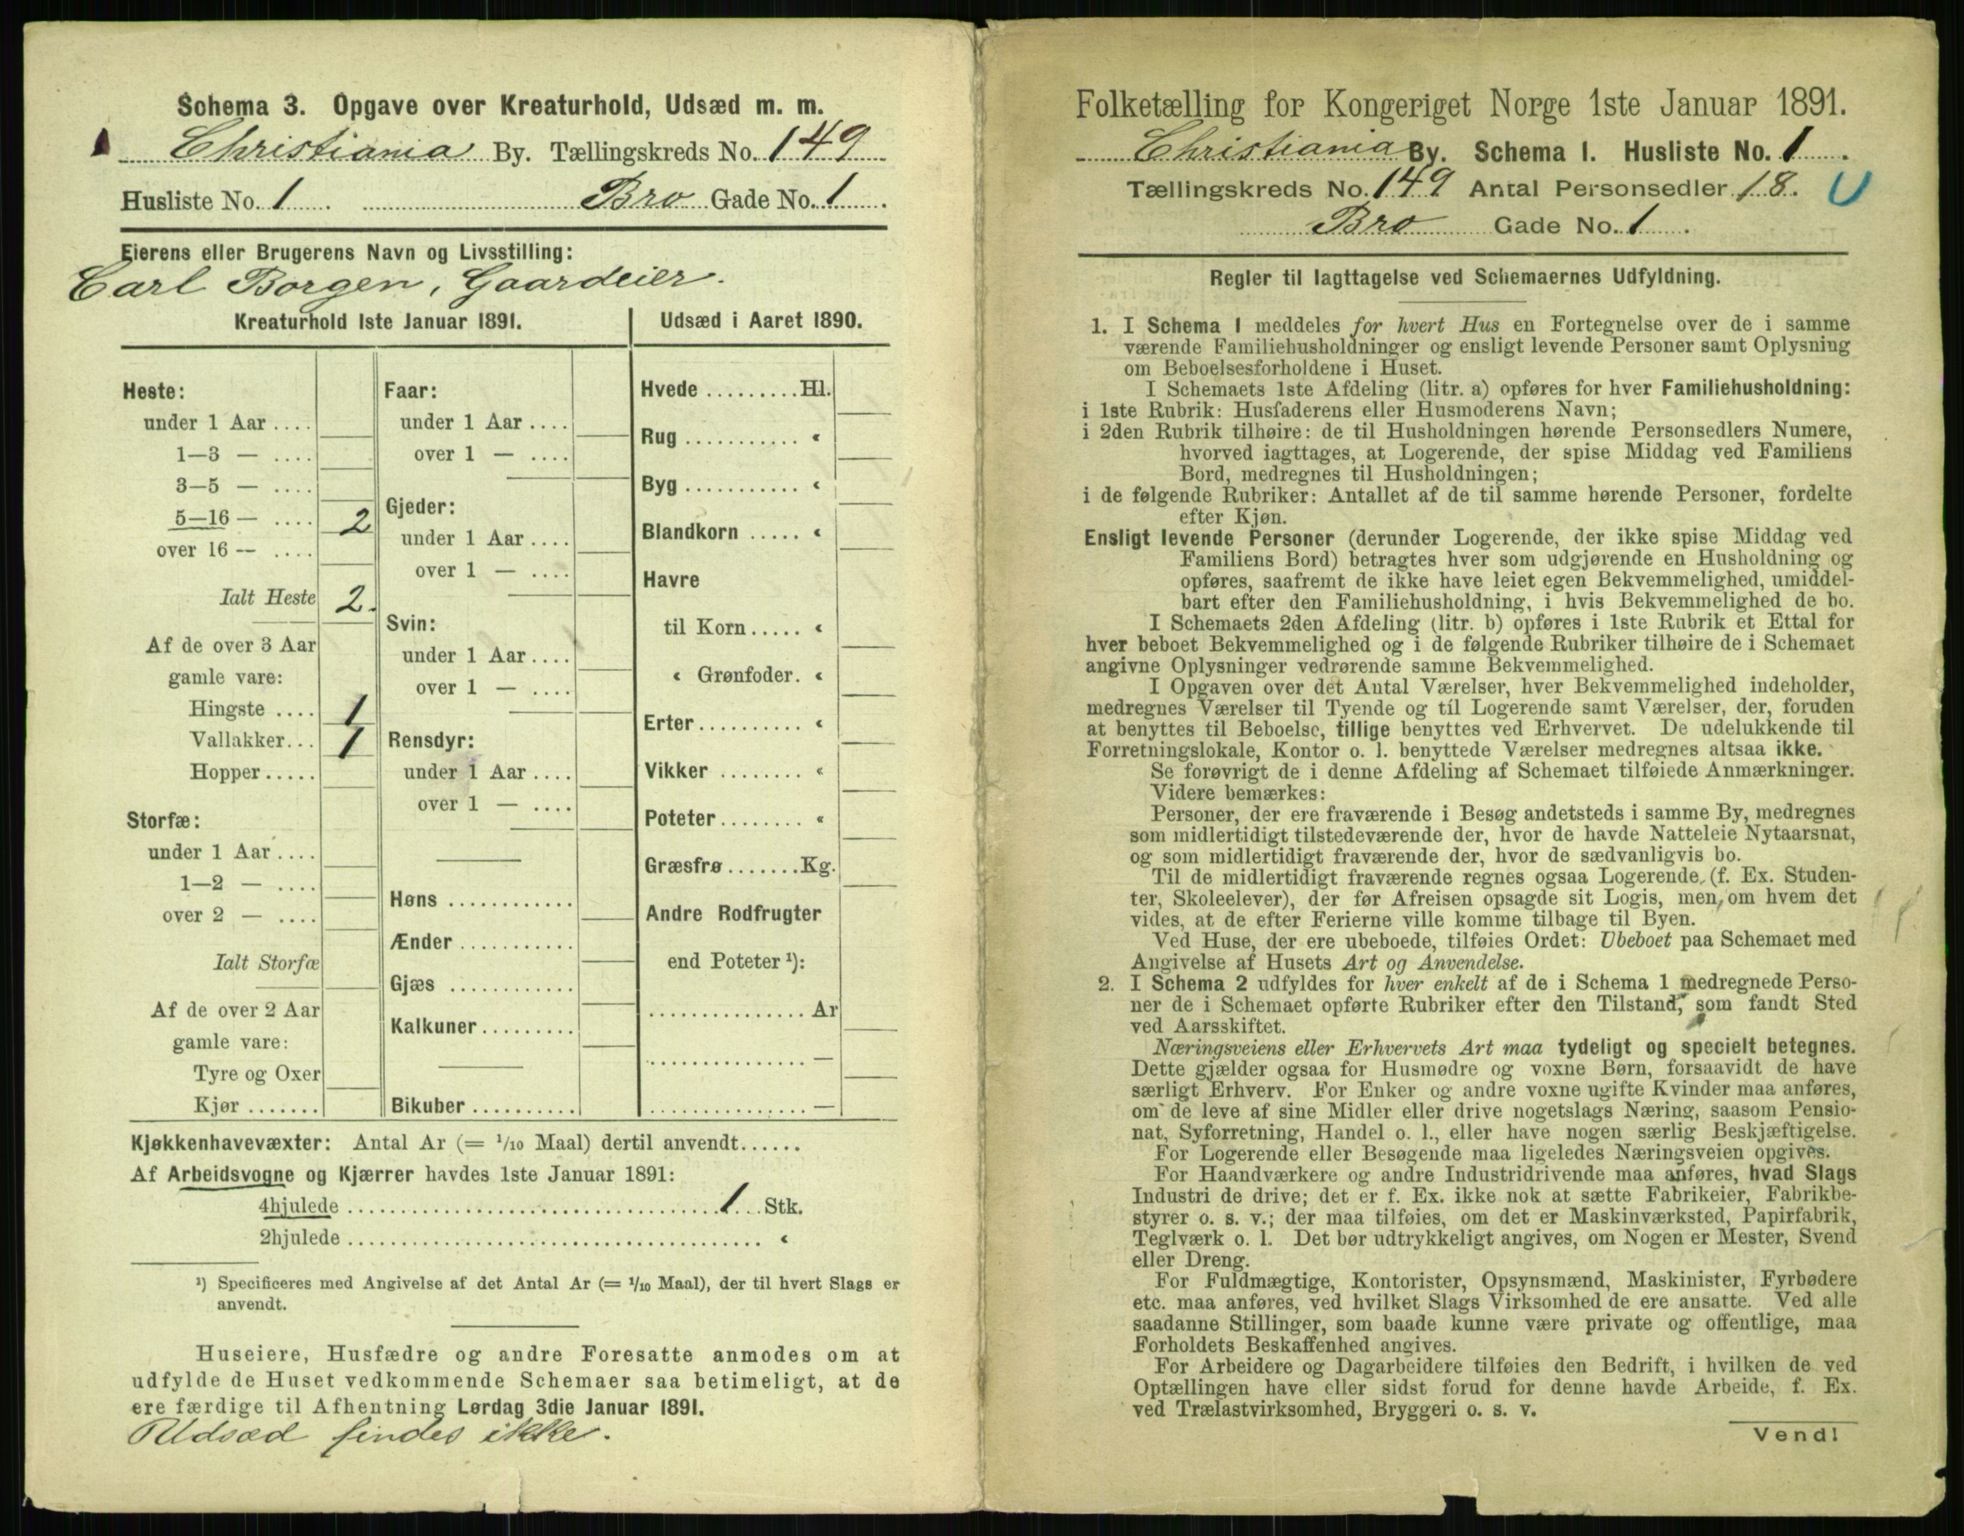 Schema 3. Opgave over Kreaturhold, Udsæd m. m.
Christiania By. Tællingskreds No. 149
Husliste No. 1 Bro Gade No. 1
Eierens eller Brugerens Navn og Livsstilling:
Carl Borgen, Gaardeier.
Kreaturhold 1ste Januar 1891.
Heste:
under 1 Aar ....
1—3 — ....
3—5 — ....
5—16 — .... 2
over 16 — ....
Ialt Heste 2.
Af de over 3 Aar
gamle vare:
Hingste .... 1
Vallakker... 1
Hopper.....
Storfæ:
under 1 Aar ....
1—2 — ....
over 2 — ....
Ialt Storfæ
Af de over 2 Aar
gamle vare:
Tyre og Oxer
Kjør .......
Faar:
under 1 Aar ....
over 1 — ....
Gjeder:
under 1 Aar ....
over 1 — ....
Svin:
under 1 Aar ....
over 1 — ....
Rensdyr:
under 1 Aar ....
over 1 — ....
Høns ............
Ænder ...........
Gjæs ............
Kalkuner .........
Bikuber ..........
Udsæd i Aaret 1890.
Hvede .........Hl.
Rug ........... «
Byg ........... «
Blandkorn ..... «
Havre
til Korn ..... «
« Grønfoder. «
Erter .......... «
Vikker ........ «
Poteter ........ «
Græsfrø .......Kg.
Andre Rodfrugter
end Poteter ¹):
............... Ar
............... —
............... —
Kjøkkenhavevæxter: Antal Ar (= 1/10 Maal) dertil anvendt......
Af Arbeidsvogne og Kjærrer havdes 1ste Januar 1891:
4hjulede .................................... 1 ... Stk.
2hjulede ........................................ «
¹) Specificeres med Angivelse af det Antal Ar (= 1/10 Maal), der til hvert Slags er
anvendt.
Huseiere, Husfædre og andre Foresatte anmodes om at
udfylde de Huset vedkommende Schemaer saa betimeligt, at de
ere færdige til Afhentning Lørdag 3die Januar 1891.
Udsæd findes ikke.
Folketælling for Kongeriget Norge 1ste Januar 1891.
Christiania By. Schema 1. Husliste No. 1
Tællingskreds No. 149 Antal Personsedler 18.
Bro Gade No. 1
Regler til Iagttagelse ved Schemaernes Udfyldning.
1. I Schema 1 meddeles for hvert Hus en Fortegnelse over de i samme
værende Familiehusholdninger og ensligt levende Personer samt Oplysning
om Beboelsesforholdene i Huset.
I Schemaets 1ste Afdeling (litr. a) opføres for hver Familiehusholdning:
i 1ste Rubrik: Husfaderens eller Husmoderens Navn;
i 2den Rubrik tilhøire: de til Husholdningen hørende Personsedlers Numere,
hvorved iagttages, at Logerende, der spise Middag ved Familiens
Bord, medregnes til Husholdningen;
i de følgende Rubriker: Antallet af de til samme hørende Personer, fordelte
efter Kjøn.
Ensligt levende Personer (derunder Logerende, der ikke spise Middag ved
Familiens Bord) betragtes hver som udgjørende en Husholdning og
opføres, saafremt de ikke have leiet egen Bekvemmelighed, umiddel-
bart efter den Familiehusholdning, i hvis Bekvemmelighed de bo.
I Schemaets 2den Afdeling (litr. b) opføres i 1ste Rubrik et Ettal for
hver beboet Bekvemmelighed og i de følgende Rubriker tilhøire de i Schemaet
angivne Oplysninger vedrørende samme Bekvemmelighed.
I Opgaven over det Antal Værelser, hver Bekvemmelighed indeholder,
medregnes Værelser til Tyende og til Logerende samt Værelser, der, foruden
at benyttes til Beboelse, tillige benyttes ved Erhvervet. De udelukkende til
Forretningslokale, Kontor o. l. benyttede Værelser medregnes altsaa ikke.
Se forøvrigt de i denne Afdeling af Schemaet tilføiede Anmærkninger.
Videre bemærkes:
Personer, der ere fraværende i Besøg andetsteds i samme By, medregnes
som midlertidigt tilstedeværende der, hvor de havde Natteleie Nytaarsnat,
og som midlertidigt fraværende der, hvor de sædvanligvis bo.
Til de midlertidigt fraværende regnes ogsaa Logerende (f. Ex. Studen-
ter, Skoleelever), der før Afreisen opsagde sit Logis, men, om hvem det
vides, at de efter Ferierne ville komme tilbage til Byen.
Ved Huse, der ere ubeboede, tilføies Ordet: Ubeboet paa Schemaet med
Angivelse af Husets Art og Anvendelse.
2. I Schema 2 udfyldes for hver enkelt af de i Schema 1 medregnede Perso-
ner de i Schemaet opførte Rubriker efter den Tilstand, som fandt Sted
ved Aarsskiftet.
Næringsveiens eller Erhvervets Art maa tydeligt og specielt betegnes.
Dette gjælder ogsaa for Husmødre og voxne Børn, forsaavidt de have
særligt Erhverv. For Enker og andre voxne ugifte Kvinder maa anføres,
om de leve af sine Midler eller drive nogetslags Næring, saasom Pensio-
nat, Syforretning, Handel o. l., eller have nogen særlig Beskjæftigelse.
For Logerende eller Besøgende maa ligeledes Næringsveien opgives.
For Haandværkere og andre Industridrivende maa anføres, hvad Slags
Industri de drive; det er f. Ex. ikke nok at sætte Fabrikeier, Fabrikbe-
styrer o. s. v.; der maa tilføies, om det er Maskinværksted, Papirfabrik,
Teglværk o. l. Det bør udtrykkeligt angives, om Nogen er Mester, Svend
eller Dreng.
For Fuldmægtige, Kontorister, Opsynsmænd, Maskinister, Fyrbødere
etc. maa anføres, ved hvilket Slags Virksomhed de ere ansatte. Ved alle
saadanne Stillinger, som baade kunne være private og offentlige, maa
Forholdets Beskaffenhed angives.
For Arbeidere og Dagarbeidere tilføies den Bedrift, i hvilken de ved
Optællingen have eller sidst forud for denne havde Arbeide, f. Ex.
ved Trælastvirksomhed, Bryggeri o. s. v.
Vend!